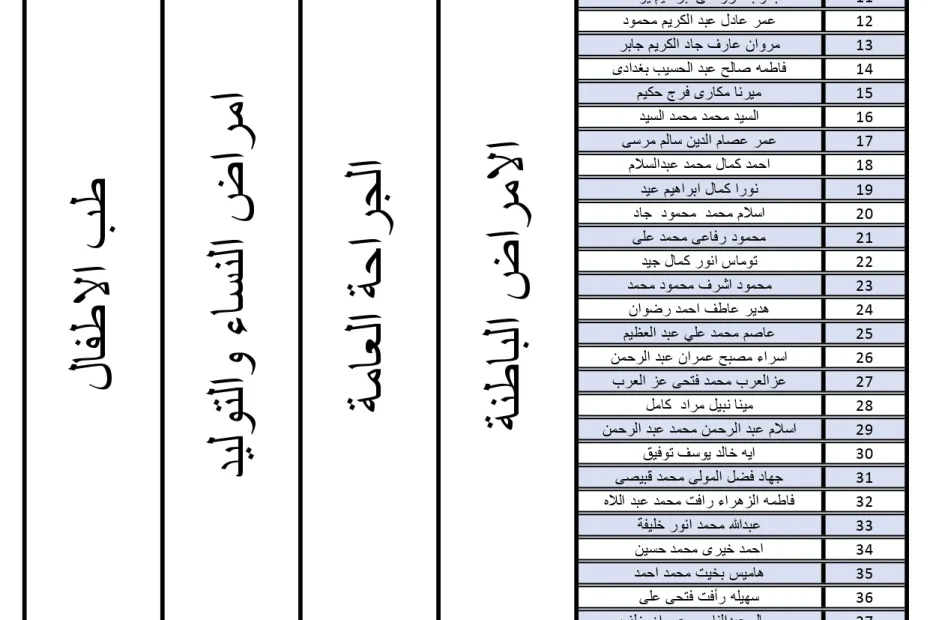 11
12 عمر عادل عبد الكريم محمود
13 مروان عارف جاد الكريم جابر
14 فاطمه صالح عبد الحسيب بغدادى
15 ميرنا مكارى فرج حكيم
16 السيد محمد محمد السيد
17 عمر عصام الدين سالم مرسى
18 احمد كمال محمد عبدالسلام
19 نورا كمال ابراهيم عيد
20 اسلام محمد محمود جاد
21 محمود رفاعى محمد على
22 توماس انور كمال جيد
23 محمود اشرف محمود محمد
24 هدير عاطف احمد رضوان
25 عاصم محمد علي عبد العظيم
26 اسراء مصبح عمران عبد الرحمن
27 عزالعرب محمد فتحى عز العرب
28 مينا نبيل مراد كامل
29 اسلام عبد الرحمن محمد عبد الرحمن
30 ايه خالد يوسف توفيق
31 جهاد فضل المولى محمد قبيصى
32 فاطمه الزهراء رافت محمد عبد اللاه
33 عبدالله محمد انور خليفة
34 احمد خيرى محمد حسين
35 هاميس بخيت محمد احمد
36 سهيله رأفت فتحى على
37
الامراض الباطنة
الجراحة العامة
امراض النساء والتوليد
طب الاطفال